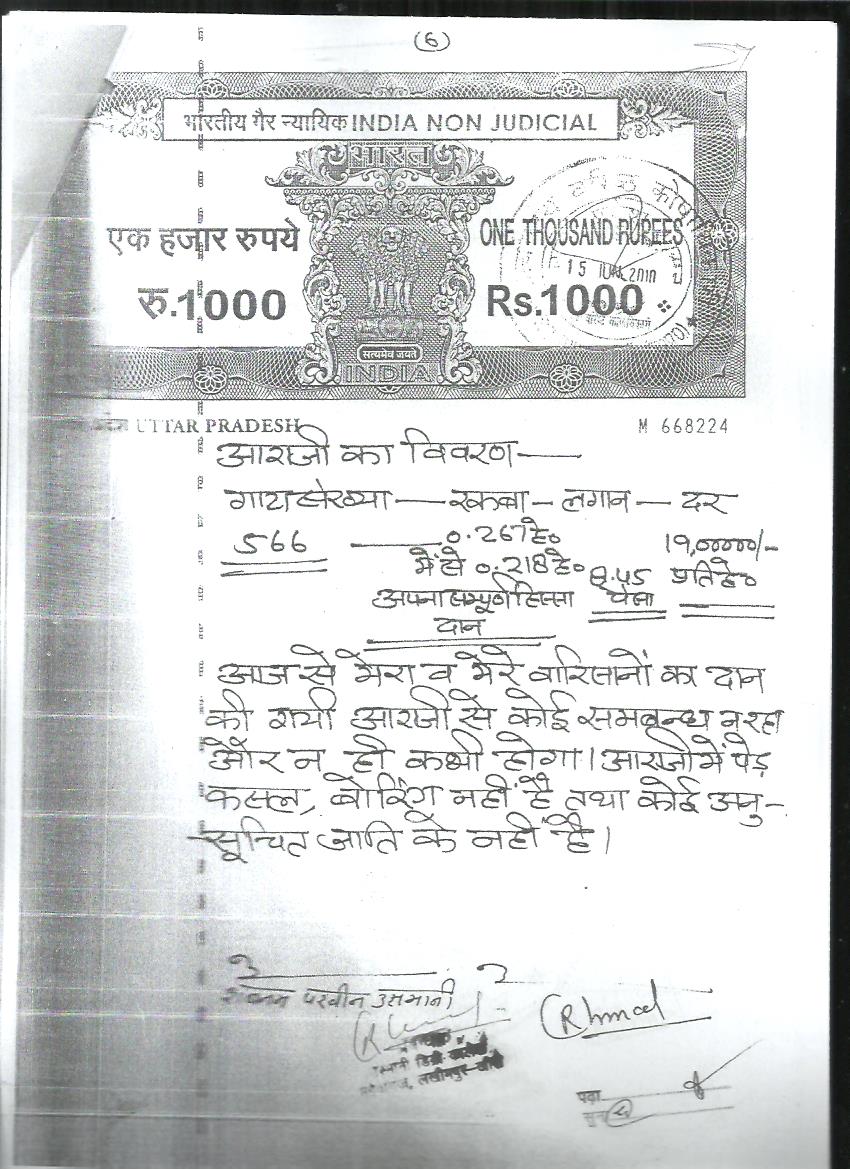 (6)
भारतीय गैर न्यायिक INDIA NON JUDICIAL
भारत
एक हजार रुपये
ONE THOUSAND RUPEES
15 JUN 2010
रु.1000
Rs.1000
सत्यमेव जयते
INDIA
UTTAR PRADESH
M 668224
आराजी का विवरण —
गाटा संख्या — रकबा — लगान — दर
566 — 0.267 हे०
में से 0.218 हे०
8.45
19,00000/-
प्रति हे०
अपना सम्पूर्ण हिस्सा
पैसा
दान
आज से मेरा व मेरे वारिसानों का दान
की गयी आराजी से कोई समबन्ध न रहा
और न ही कभी होगा। आराजी में पेड़
फसल, बोरिंग नहीं है तथा कोई अनु-
सूचित जाति के नहीं है।
परवीन उसमानी
Ahmad
लखीमपुर-खीरी
पढ़ा
सुना